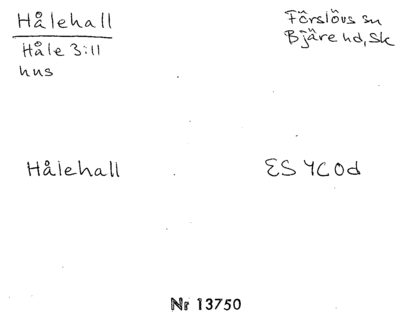 Hålehall
Håle 3:11
hus
Förslövs sn
Bjäre hd, Sk
Hålehall
ES 4C0d
Nr 13750